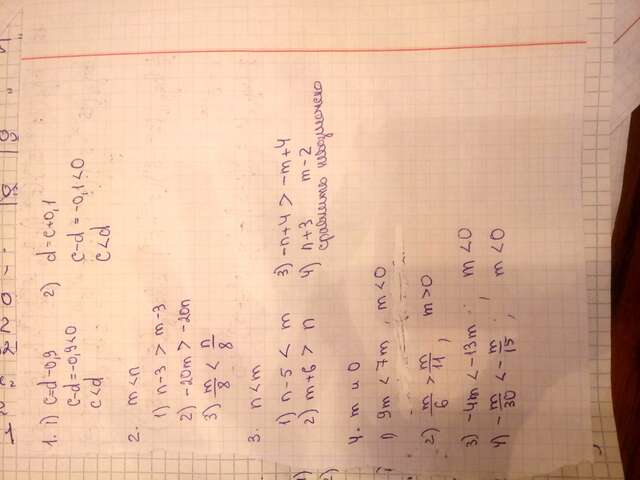 1. 1) c=d-0,9
c-d=-0,9<0
c<d
2) d=c+0,1
c-d=-0,1<0
c<d
2. m<n
1) n-3 > m-3
2) -20m > -20n
3) m/8 < n/8
3. n<m
1) n-5 < m
2) m+6 > n
3) -n+4 > -m+4
4) n+3 m-2
сравнить невозможно
4. m и 0
1) 9m < 7m , m<0
2) m/6 > m/11 , m>0
3) -4m < -13m ; m<0
4) -m/30 < -m/15 ; m<0